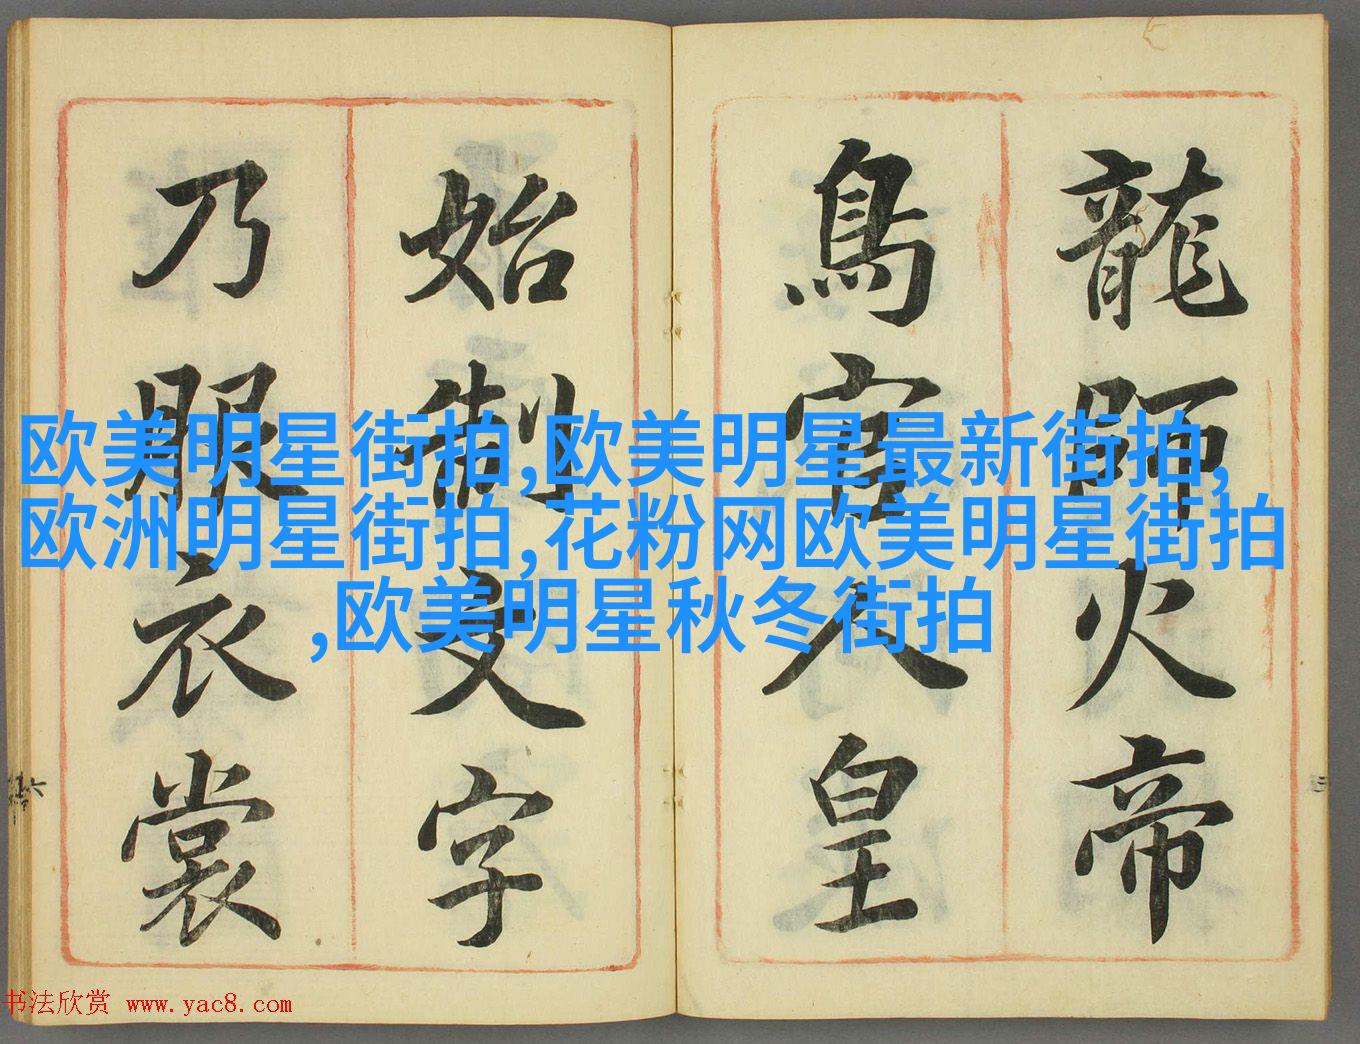 龍師火帝
鳥官人皇
始制文字
乃服衣裳
欧美明星街拍,欧美明星最新街拍,
欧洲明星街拍,花粉网欧美明星街拍
,欧美明星秋冬街拍
书法欣赏 www.yac8.com